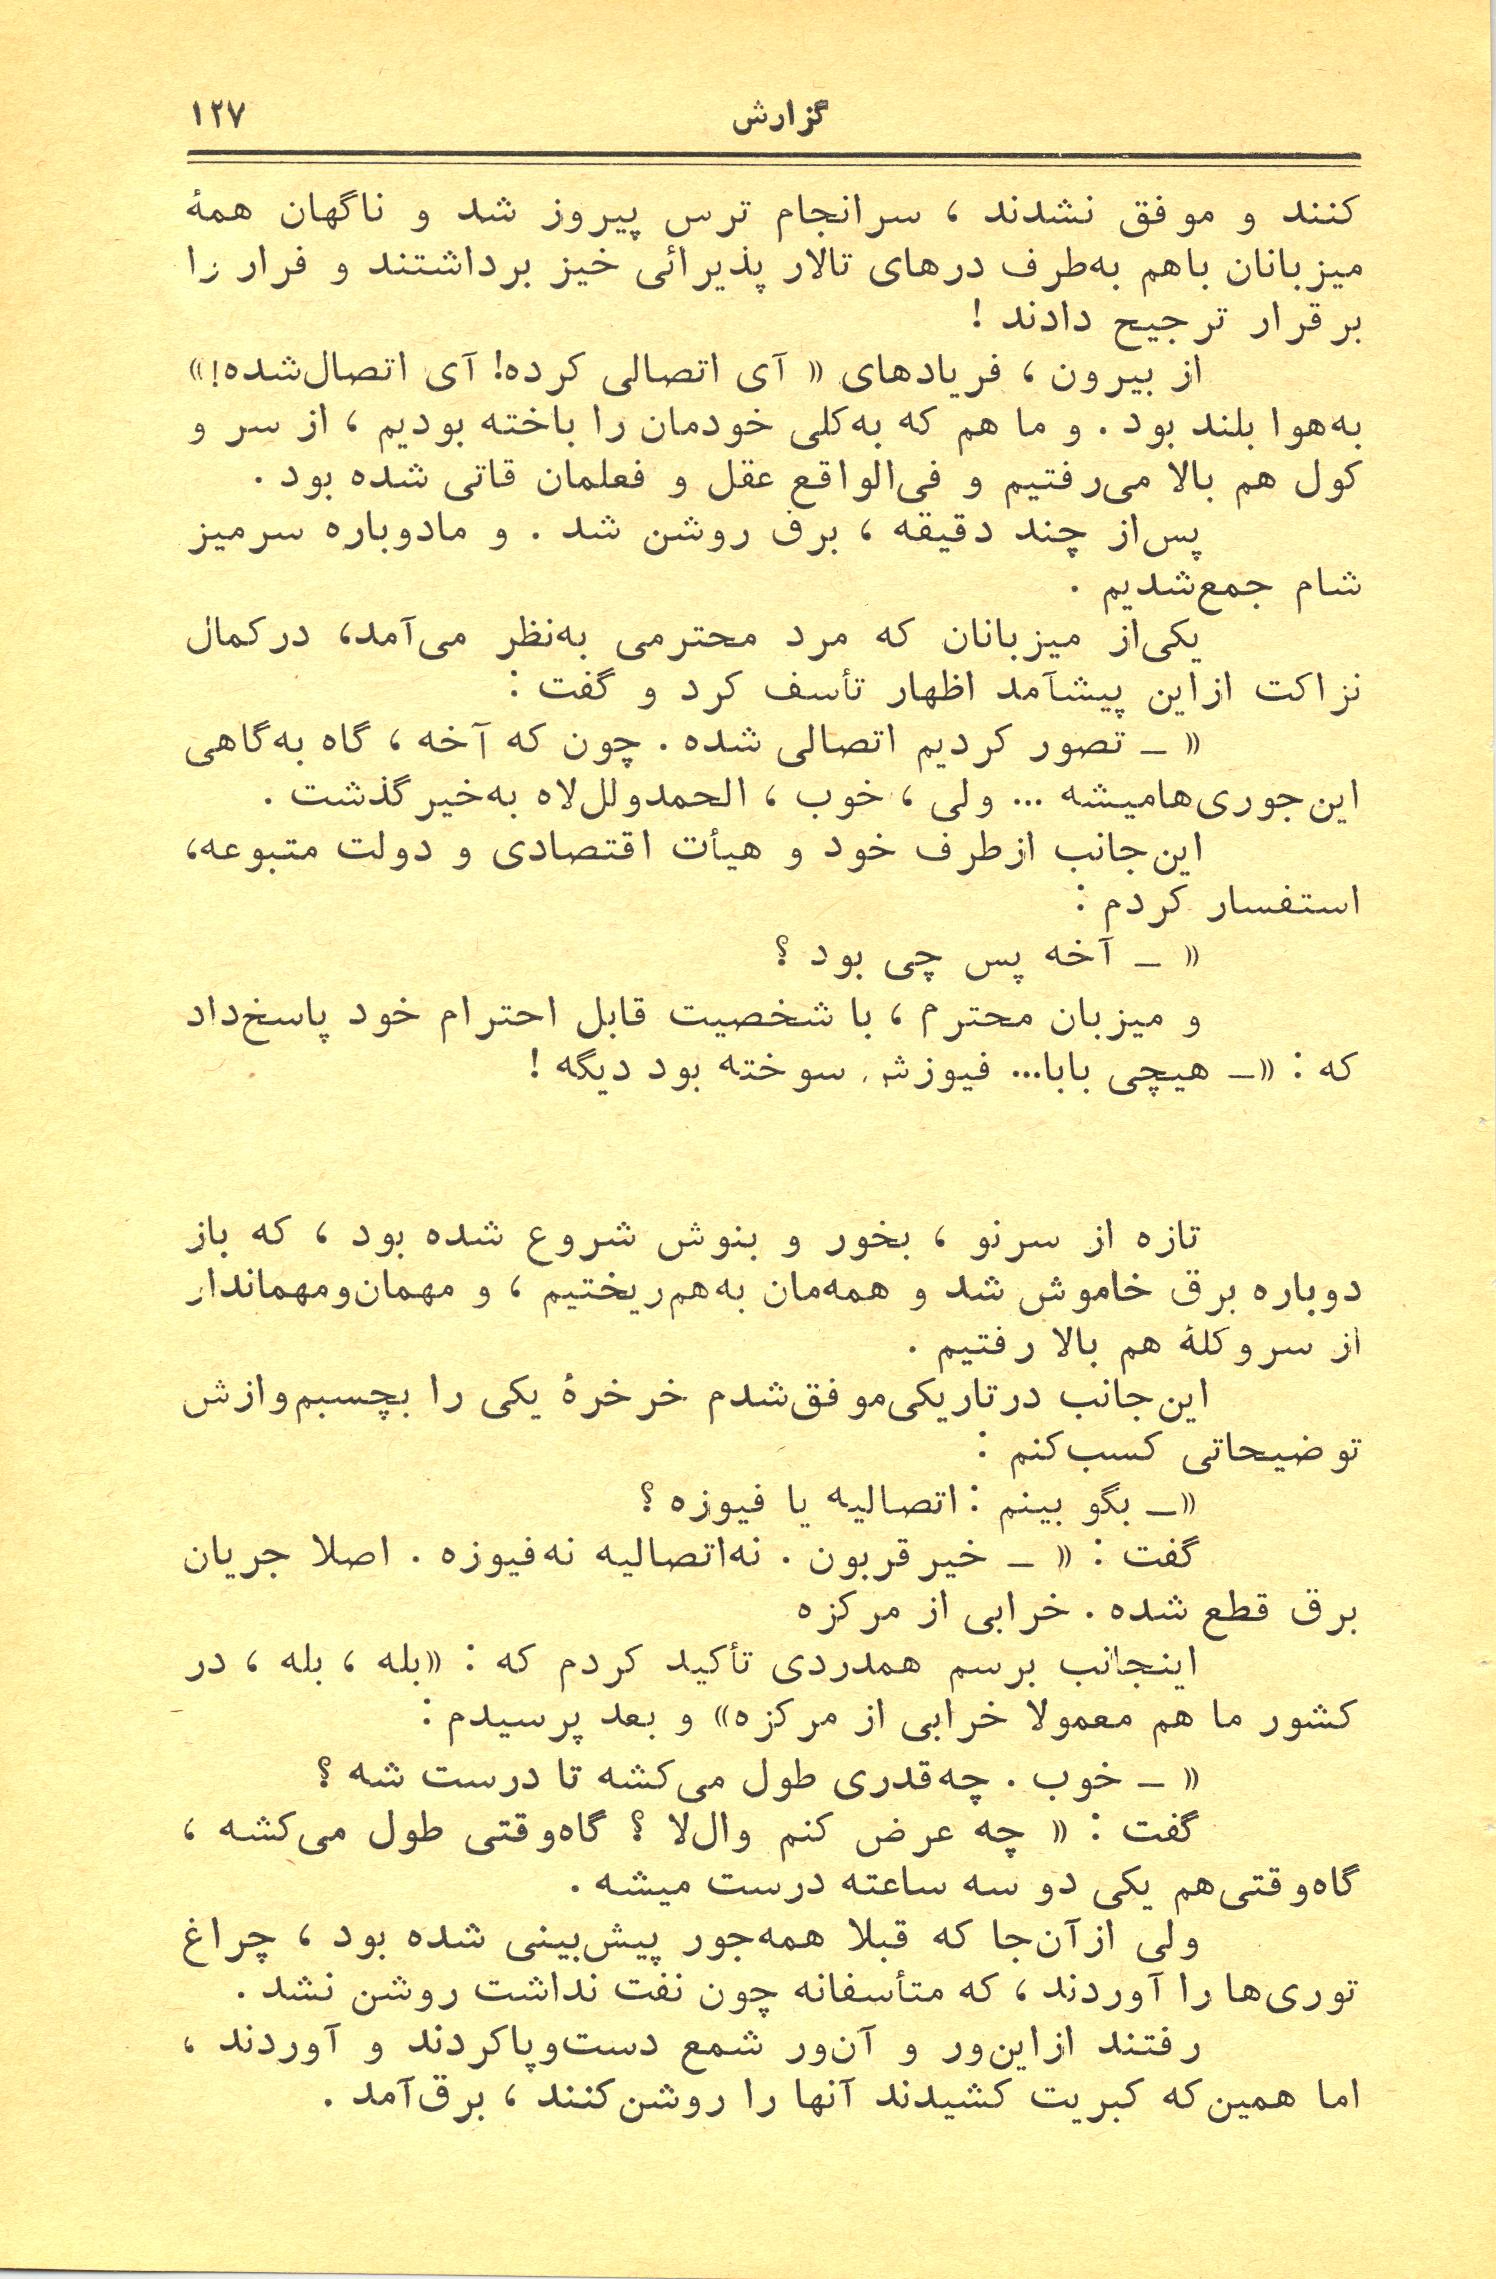 گزارش ۱۲۷
کنند و موفق نشدند ، سرانجام ترس پیروز شد و ناگهان همهٔ
میزبانان باهم به‌طرف درهای تالار پذیرائی خیز برداشتند و فرار را
برقرار ترجیح دادند !
از بیرون ، فریادهای « آی اتصالی کرده! آی اتصال‌شده!»
به‌هوا بلند بود . و ما هم که به‌کلی خودمان را باخته بودیم ، از سر و
کول هم بالا می‌رفتیم و فی‌الواقع عقل و فعلمان قاتی شده بود .
پس‌از چند دقیقه ، برق روشن شد . و مادوباره سرمیز
شام جمع‌شدیم .
یکی‌از میزبانان که مرد محترمی به‌نظر می‌آمد، درکمال
نزاکت ازاین پیشآمد اظهار تأسف کرد و گفت :
« ـ تصور کردیم اتصالی شده . چون که آخه ، گاه به‌گاهی
این‌جوری‌هامیشه ... ولی ، خوب ، الحمدولل‌لاه به‌خیرگذشت .
این‌جانب ازطرف خود و هیأت اقتصادی و دولت متبوعه،
استفسار کردم :
« ـ آخه پس چی بود ؟
و میزبان محترم ، با شخصیت قابل احترام خود پاسخ‌داد
که : «ـ هیچی بابا... فیوزش سوخته بود دیگه !
تازه از سرنو ، بخور و بنوش شروع شده بود ، که باز
دوباره برق خاموش شد و همه‌مان به‌هم‌ریختیم ، و مهمان‌ومهماندار
از سروکلهٔ هم بالا رفتیم .
این‌جانب درتاریکی‌موفق‌شدم خرخرهٔ یکی را بچسبم‌وازش
توضیحاتی کسب‌کنم :
«ـ بگو بینم : اتصالیه یا فیوزه ؟
گفت : « ـ خیرقربون . نه‌اتصالیه نه‌فیوزه . اصلا جریان
برق قطع شده . خرابی از مرکزه
اینجانب برسم همدردی تأکید کردم که : «بله ، بله ، در
کشور ما هم معمولا خرابی از مرکزه» و بعد پرسیدم :
« ـ خوب . چه‌قدری طول می‌کشه تا درست شه ؟
گفت : « چه عرض کنم وال‌لا ؟ گاه‌وقتی طول می‌کشه ،
گاه‌وقتی‌هم یکی دو سه ساعته درست میشه .
ولی ازآن‌جا که قبلا همه‌جور پیش‌بینی شده بود ، چراغ
توری‌ها را آوردند ، که متأسفانه چون نفت نداشت روشن نشد .
رفتند ازاین‌ور و آن‌ور شمع دست‌وپاکردند و آوردند ،
اما همین‌که کبریت کشیدند آنها را روشن‌کنند ، برق‌آمد .